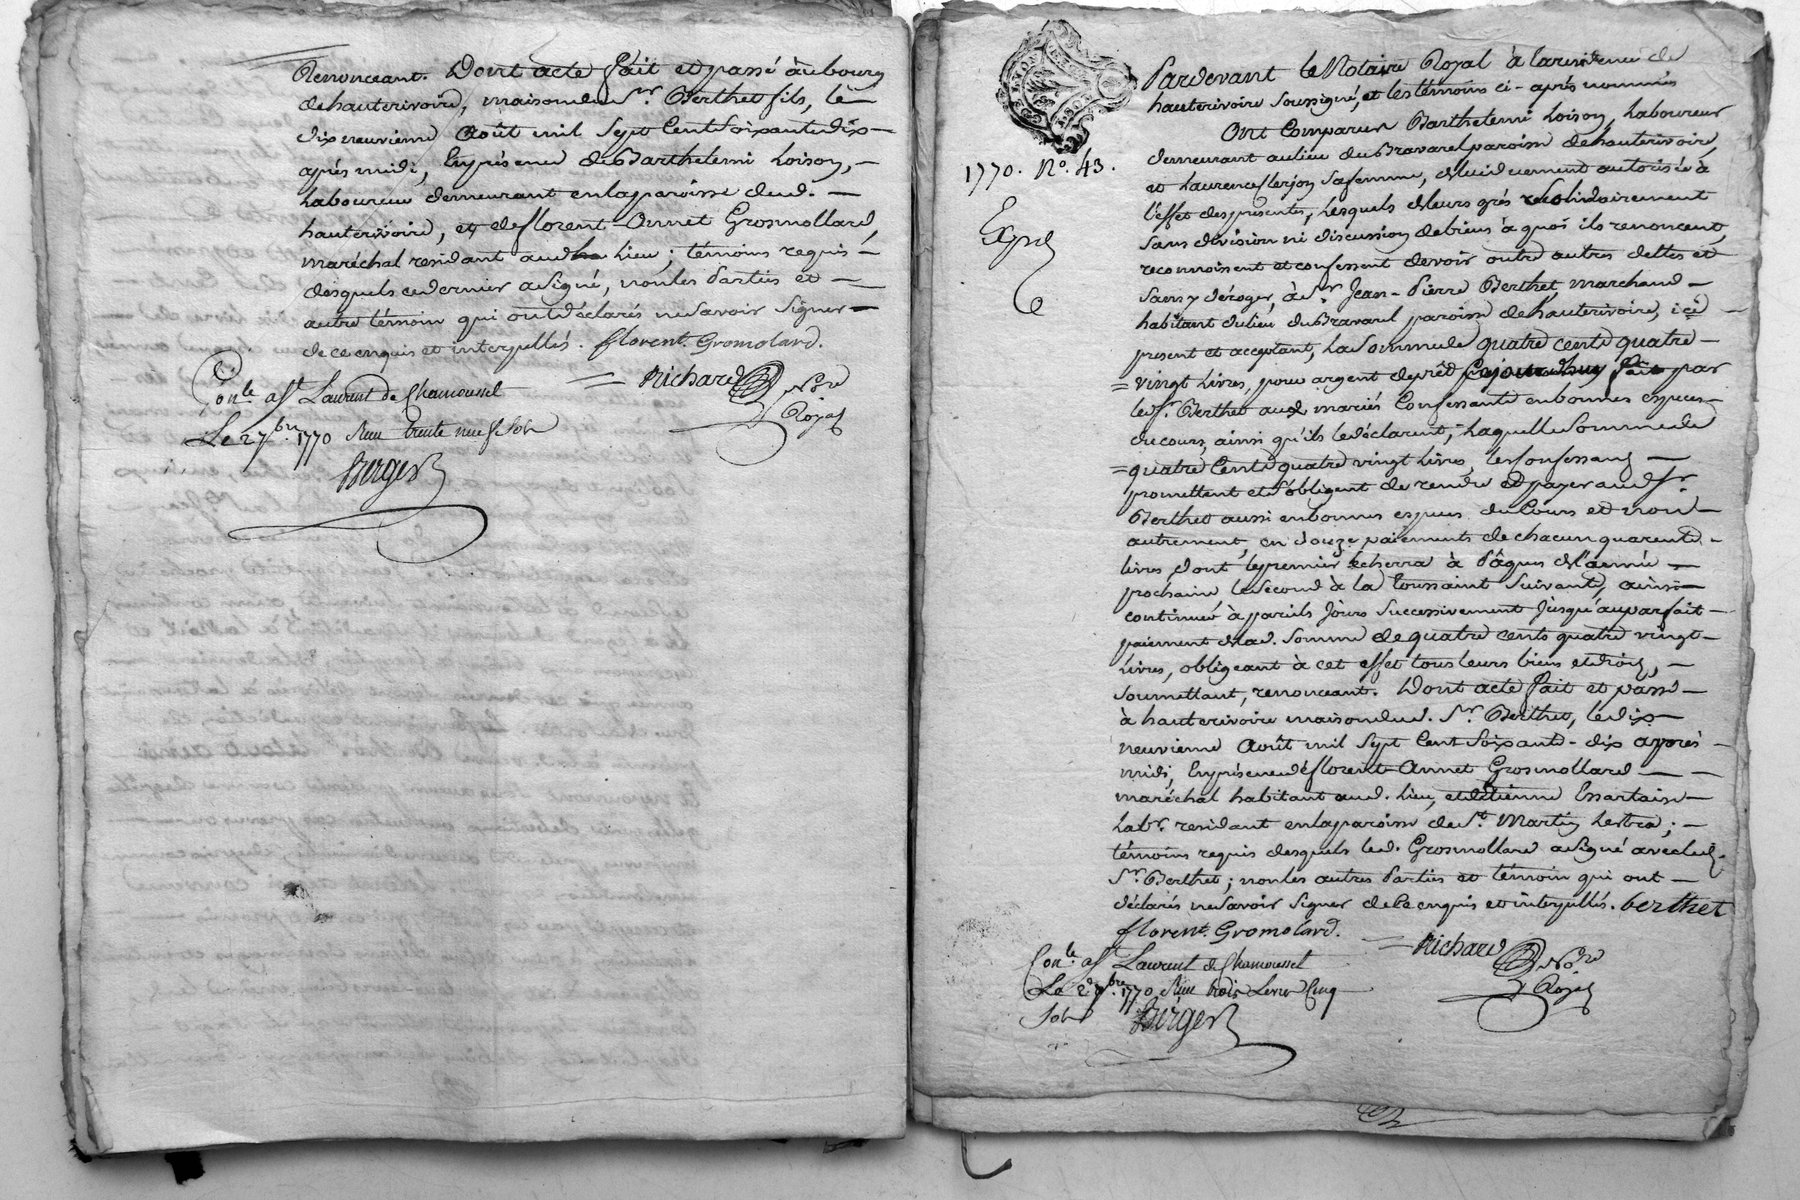 Renonceant. Dont acte fait et passé au bourg
de hauterivoire, maison du Sr. Berthet fils, le
dix neuvieme Août mil Sept Cent Soixante dix
après midi, En présence de Barthelemi Loison,
Laboureur demeurant en la paroisse dud.
hauterivoire, et de florent Annet Grosmollard,
maréchal residant aud. Lieu; témoins requis
desquels ce dernier a signé, non les Parties et
autre témoin qui ont déclarés ne Savoir Signer
de ce enquis et interpellés. florent. Gromolard.
Richard Nore
Royal
Conle. a St Laurent de Chamousset
Le 27bre. 1770 Reçu trente neuf Sols
Berger
Pardevant le Notaire Royal à la residence de
hauterivoire Soussigné, et les témoins ci-après nommés
Ont Comparu Barthelemi Loison, Laboureur
demeurant au lieu du Bravarel paroisse de hauterivoire,
et Laurence flerjon Sa femme, de lui duement autorisée à
l'effet des présentes, Lesquels de leurs grés solidairement
Sans division ni discussion de biens à quoi ils renoncent,
reconnoissent et confessent devoir outre autres dettes et
Sans y déroger, à Sr. Jean-Pierre Berthet, marchand
habitant du lieu du Bravarel paroisse de hauterivoire, ici
présent et acceptant, La Somme de quatre cents quatre
vingt Livres, pour argent de prêt Cejourdhuy fait par
led. Sr. Berthet aud. mariés Confessants en bonnes espèces
du cours, ainsi qu'ils le déclarent, Laquelle Somme de
quatre Cents quatre vingt Livres, les Confessans
promettent et s'obligent de rendre et payer aud. Sr.
Berthet aussi en bonnes espèces du Cours et non
autrement, en douze paiements de chacun quarante
livres, dont le premier écherra à Pâques de l'année
prochaine le Second à la Toussaint Suivante, ainsi
continuer à pareils Jours Successivement Jusqu'au parfait
paiement de lad. Somme de quatre cents quatre vingt
Livres, obligeant à cet effet tous leurs biens et droits,
Soumettant, renonceant. Dont acte fait et passé
à hauterivoire maison dud. Sr. Berthet, le dix
neuvieme Août mil Sept Cent Soixante-dix après
midi, En présence de florent Annet Grosmollard
maréchal habitant aud. Lieu, et d'Etienne Essartaise
Labr. residant en la paroisse de St. Martin Lestra;
témoins requis desquels led. Grosmollard a Signé avec led.
Sr. Berthet; non les autres Parties et témoin qui ont
déclarés ne Savoir Signer de Ce enquis et interpellés. berthet
florent. Gromolard.
Richard Nore
Royal
1770. No. 43.
Expé
Conle. a St Laurent de Chamousset
Le 2e 7bre. 1770 Reçu trois Livres Cinq
Sols Berger